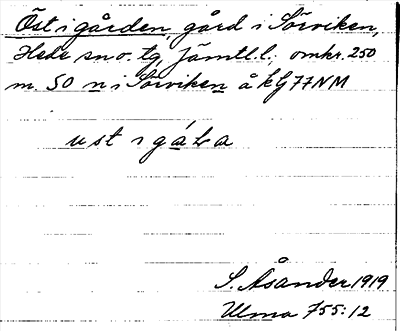 Öst i gården, gård i Sörviken,
Hede sn o. tg, Jämtl. l.; omkr. 250
m. SO n i Sörviken å kG 77NM
ust i gáLa
S. Åsander 1919
Ulma 755:12